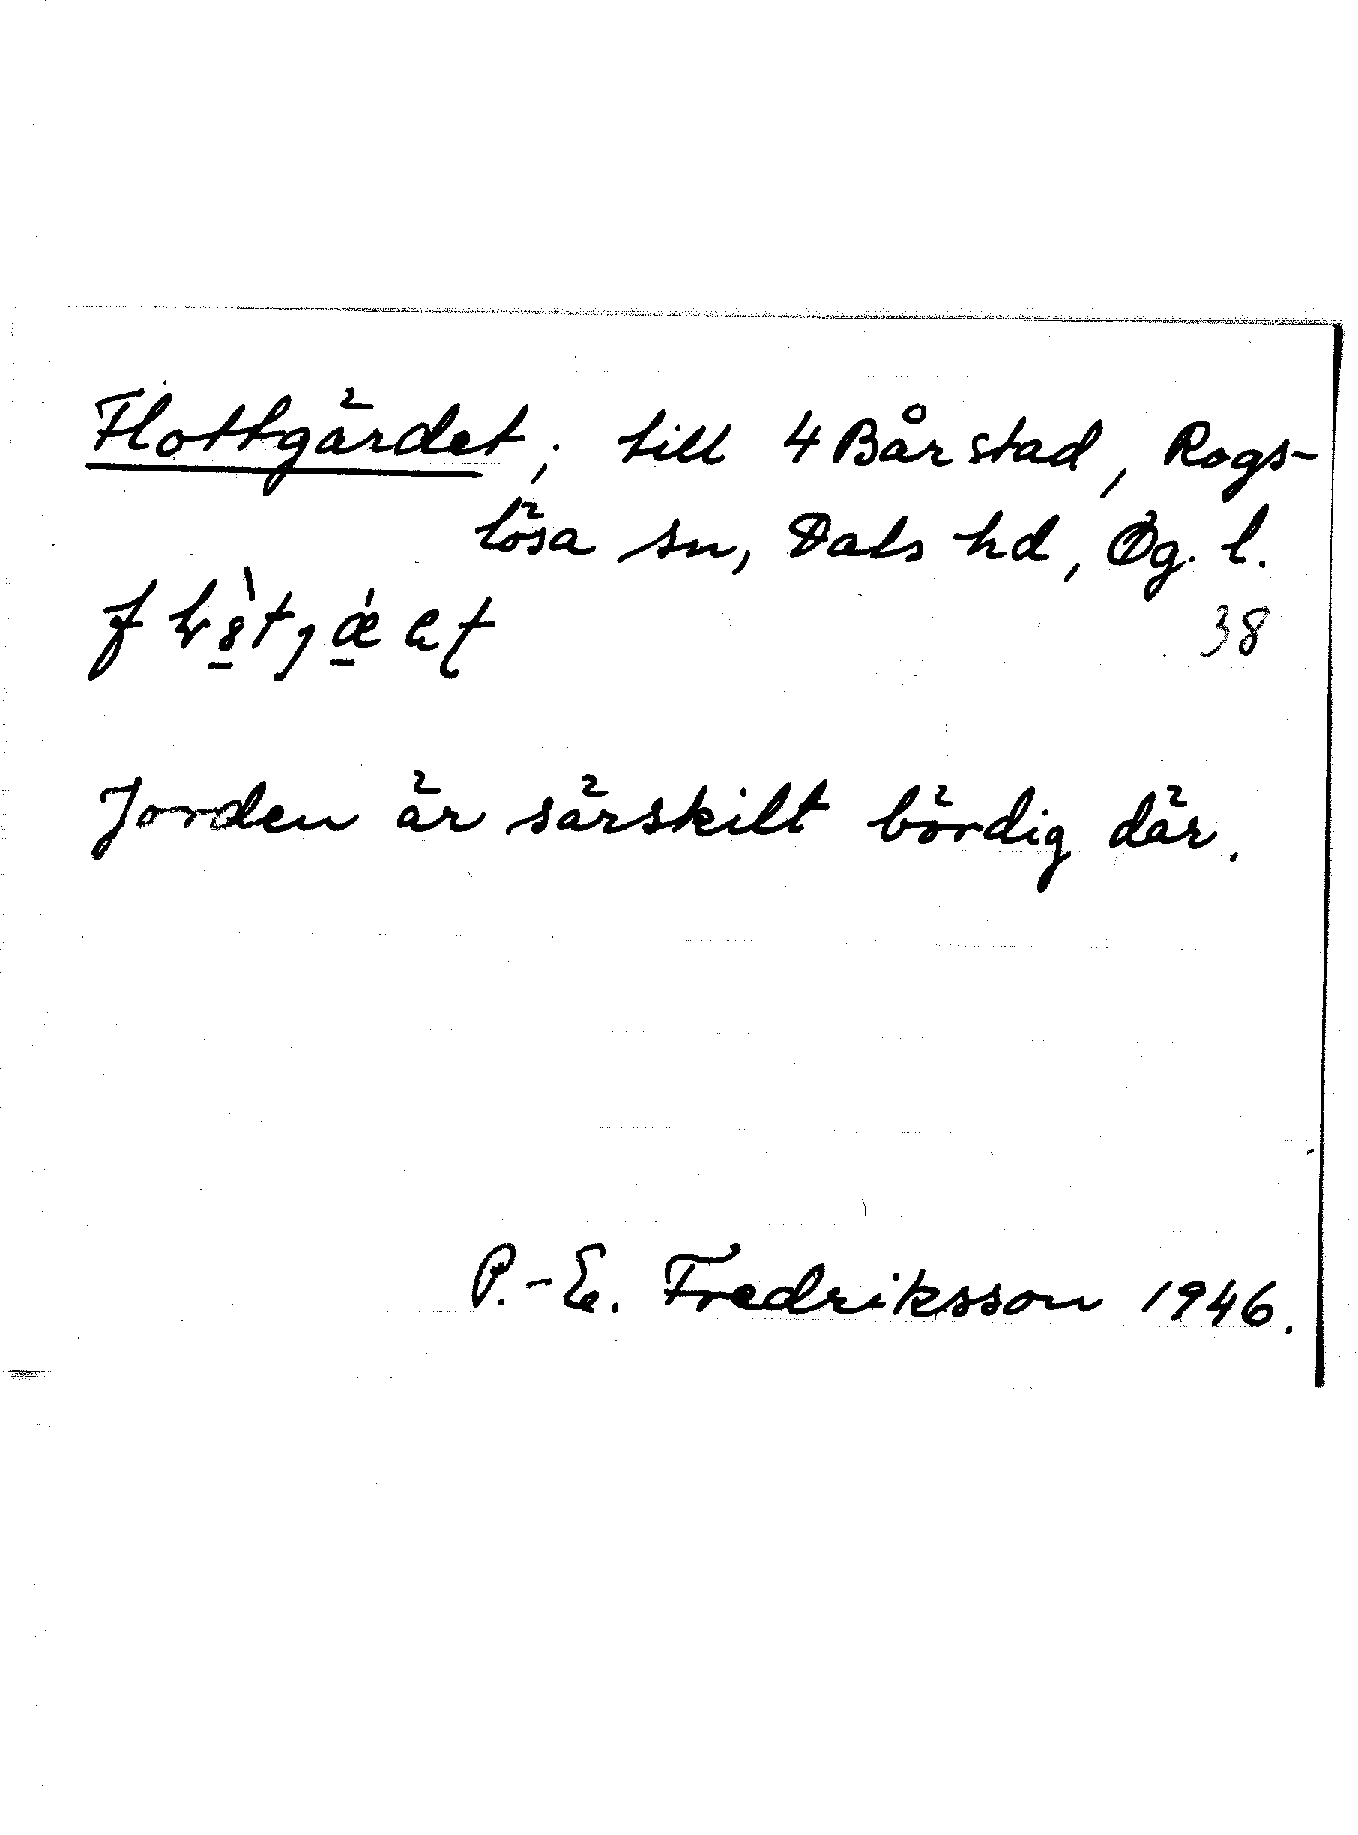 Flottgärdet; till 4 Bårstad, Rogs-
lösa sn, Dals hd, Ög. l.
38
Jorden är särskilt bördig där.
P.-E. Fredriksson 1946.